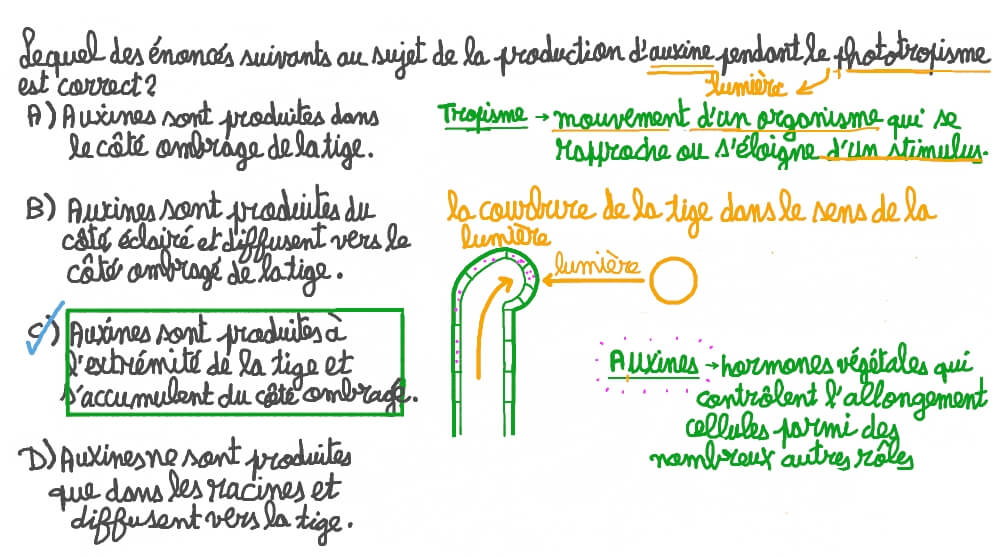 Lequel des énoncés suivants au sujet de la production d'auxine pendant le phototropisme
est correct?
lumière
A) Auxines sont produites dans
le côté ombrage de la tige.
B) Auxines sont produites du
côté éclairé et diffusent vers le
côté ombragé de la tige.
C) Auxines sont produites à
l'extrémité de la tige et
s'accumulent du côté ombragé.
D) Auxines ne sont produites
que dans les racines et
diffusent vers la tige.
Tropisme → mouvement d'un organisme qui se
rapproche ou s'éloigne d'un stimulus.
la courbure de la tige dans le sens de la
lumière
lumière
Auxines → hormones végétales qui
contrôlent l'allongement
cellules parmi des
nombreux autres rôles